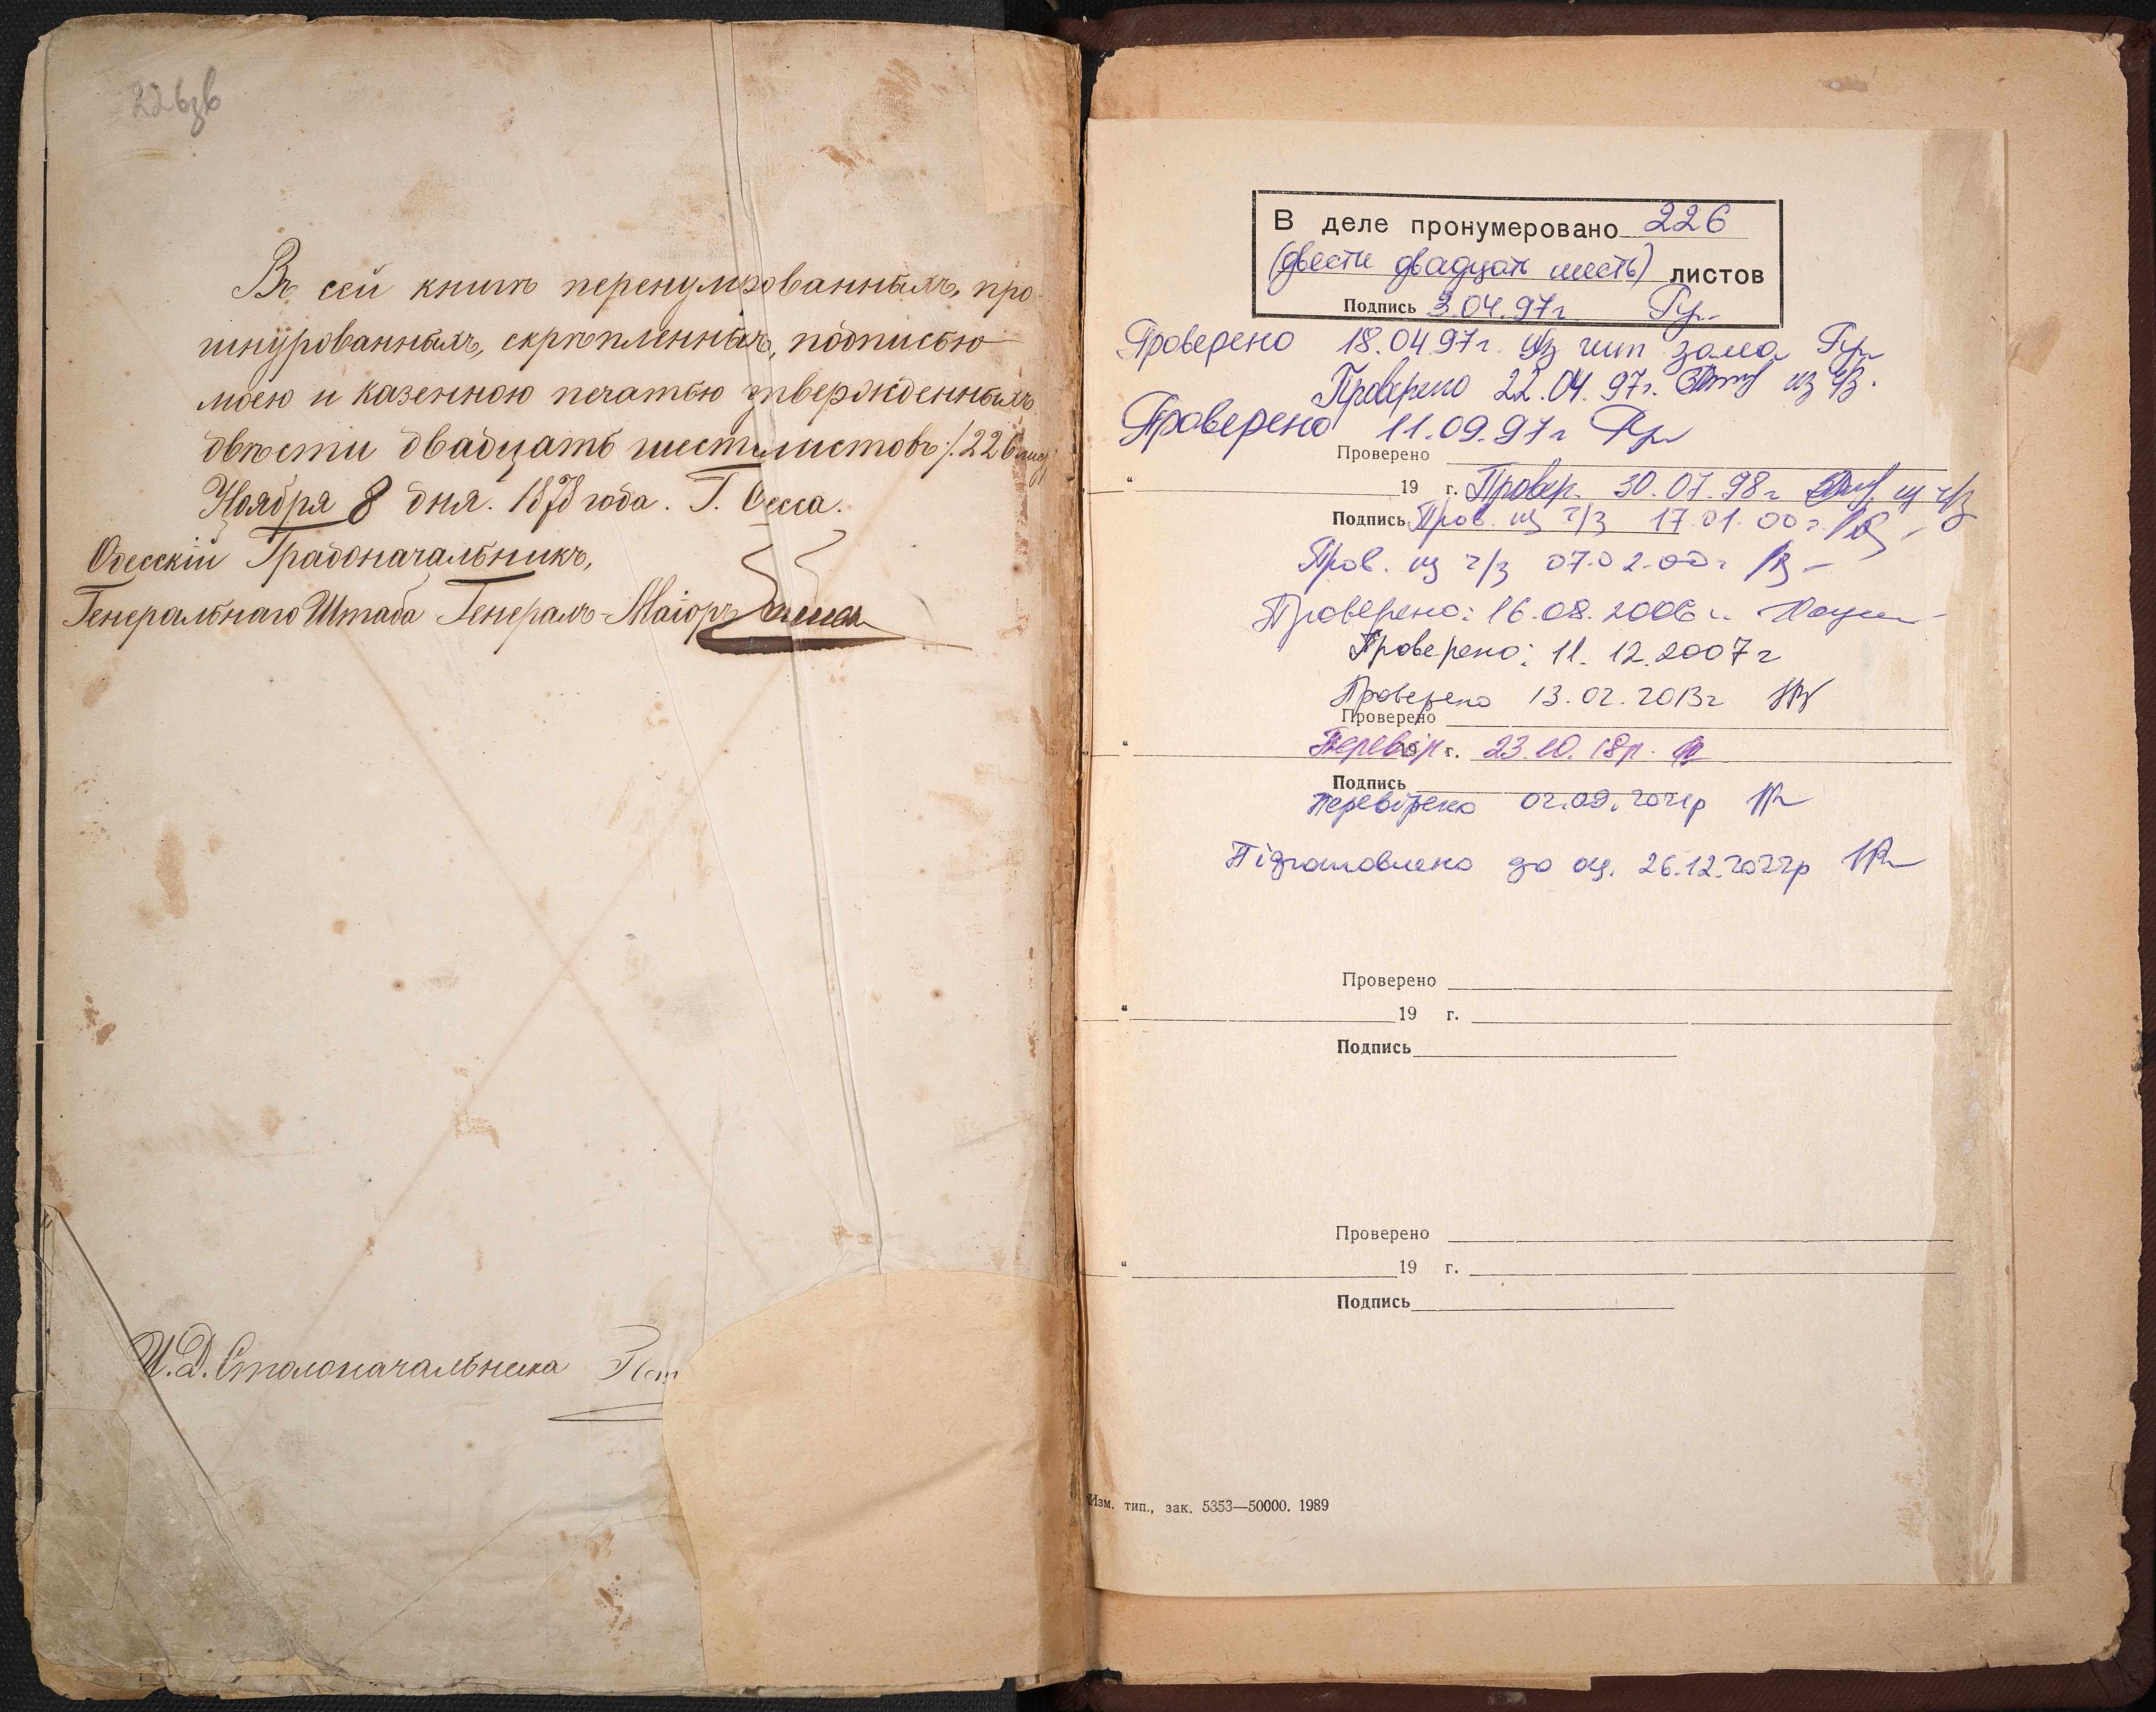 226зв
Въ сей книгѣ перенумерованныхъ, про-
шнурованныхъ, скрѣпленныхъ, подписью
моею и казенною печатью утвержденныхъ
двѣсти двадцать шесть листовъ /.226
Ноября 8 дня. 1878 года. Г. Одесса.
Одесскій Градоначальникъ,
Генеральнаго Штаба Генералъ-Маіоръ
И.Д. Столоначальника
В деле пронумеровано 226
(двести двадцать шесть) листов
Подпись 3.04.97г
Проверено 18.04.97г. из чит зала
Проверено 22.04.97г. из ч/з.
Проверено 11.09.97г
Проверено
“ 19 г. Провер. 30.07.98г из ч/з
Подпись Пров. из ч/з 17.01.00г.
Пров. из ч/з 07.02.00г
Проверено: 16.08.2006г.
Проверено: 11.12.2007г
Проверено 13.02.2013г
Проверено
“ 19 г. Перевір. 23.10.18р.
Подпись
Перевірено 02.09.2021р
Підготовлено до оц. 26.12.2022р
Проверено
“ 19 г.
Подпись
Проверено
“ 19 г.
Подпись
Изм. тип., зак. 5353—50000. 1989